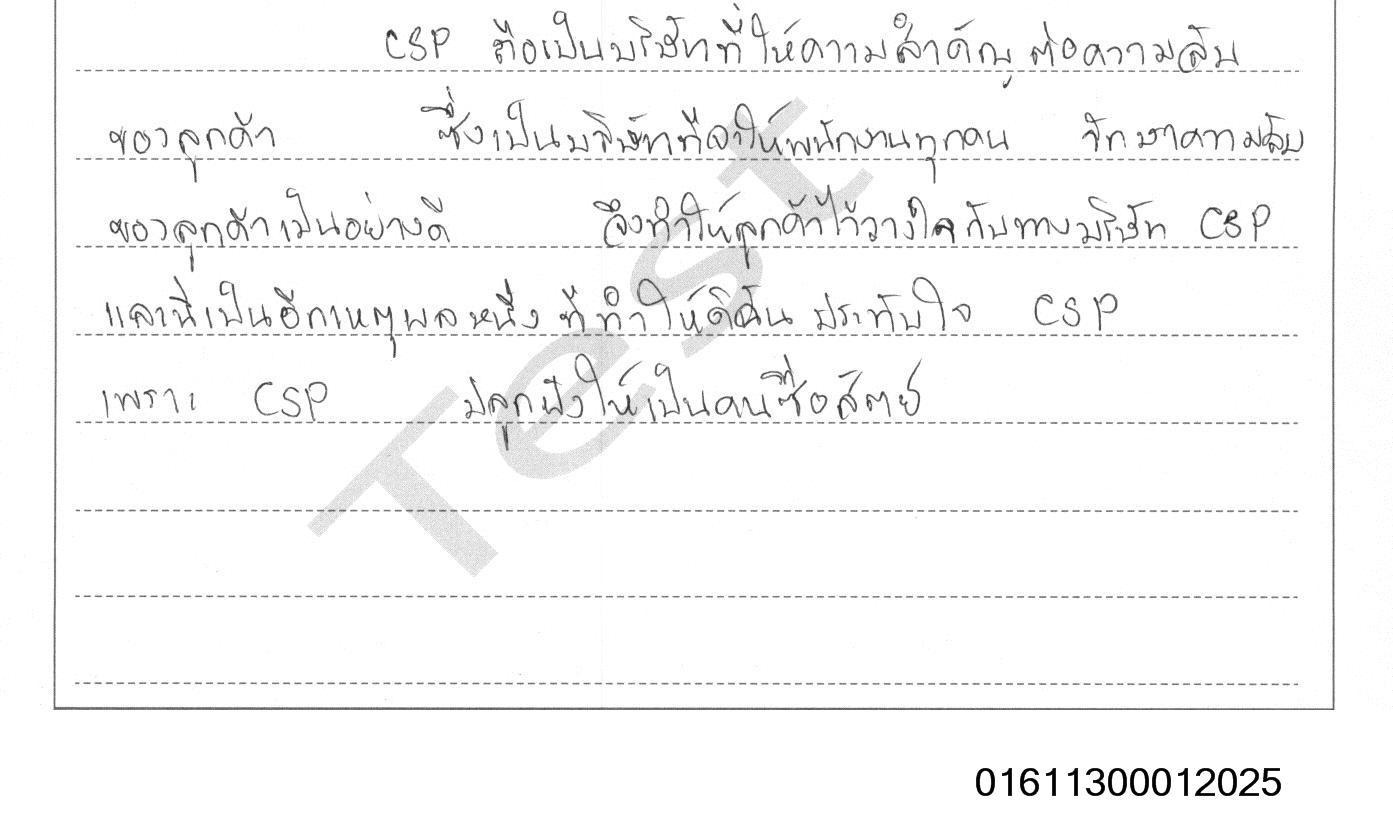 CSP ถือเป็นบริษัทที่ให้ความสำคัญต่อความลับ
ของลูกค้า ซึ่งเป็นบริษัทที่จะให้พนักงานทุกคน รักษาความลับ
ของลูกค้าเป็นอย่างดี จึงทำให้ลูกค้าไว้วางใจกับทางบริษัท CSP
และนี่เป็นอีกเหตุผลหนึ่ง ที่ทำให้ดิฉัน ประทับใจ CSP
เพราะ CSP ปลูกฝังให้เป็นคนซื่อสัตย์
Test
01611300012025